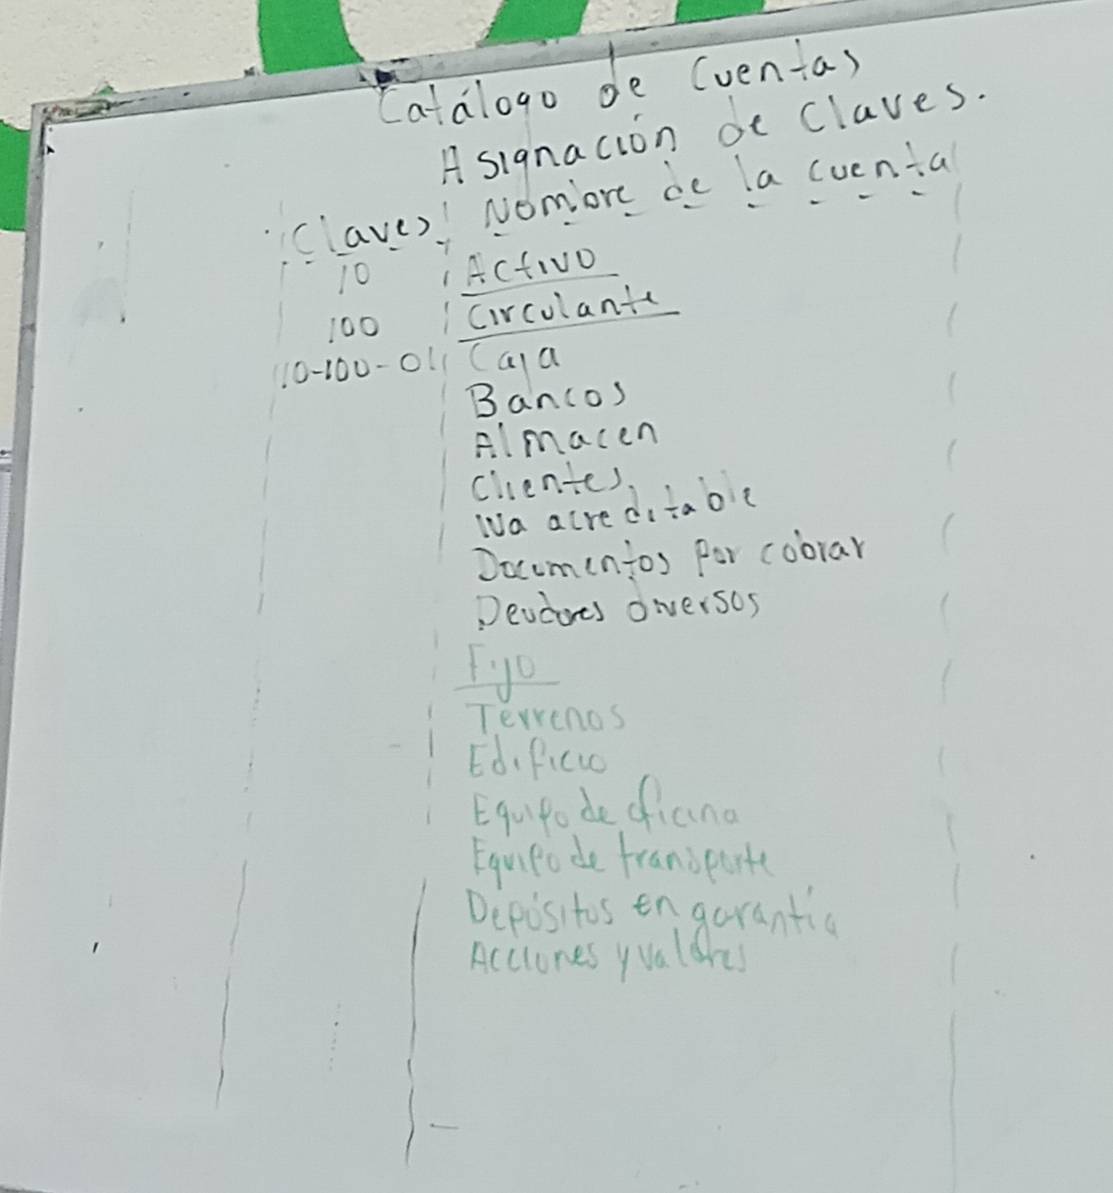 Catálogo de Cuentas
Asignación de Claves.
Claves Nombre de la cuenta
10 Activo
100 Circulante
10-100-01 Caja
Bancos
Almacen
Clientes
Iva acreditable
Documentos por cobrar
Deudores diversos
Fijo
Terrenos
Edificio
Equipo de oficina
Equipo de transporte
Depósitos en garantía
Acciones y valores